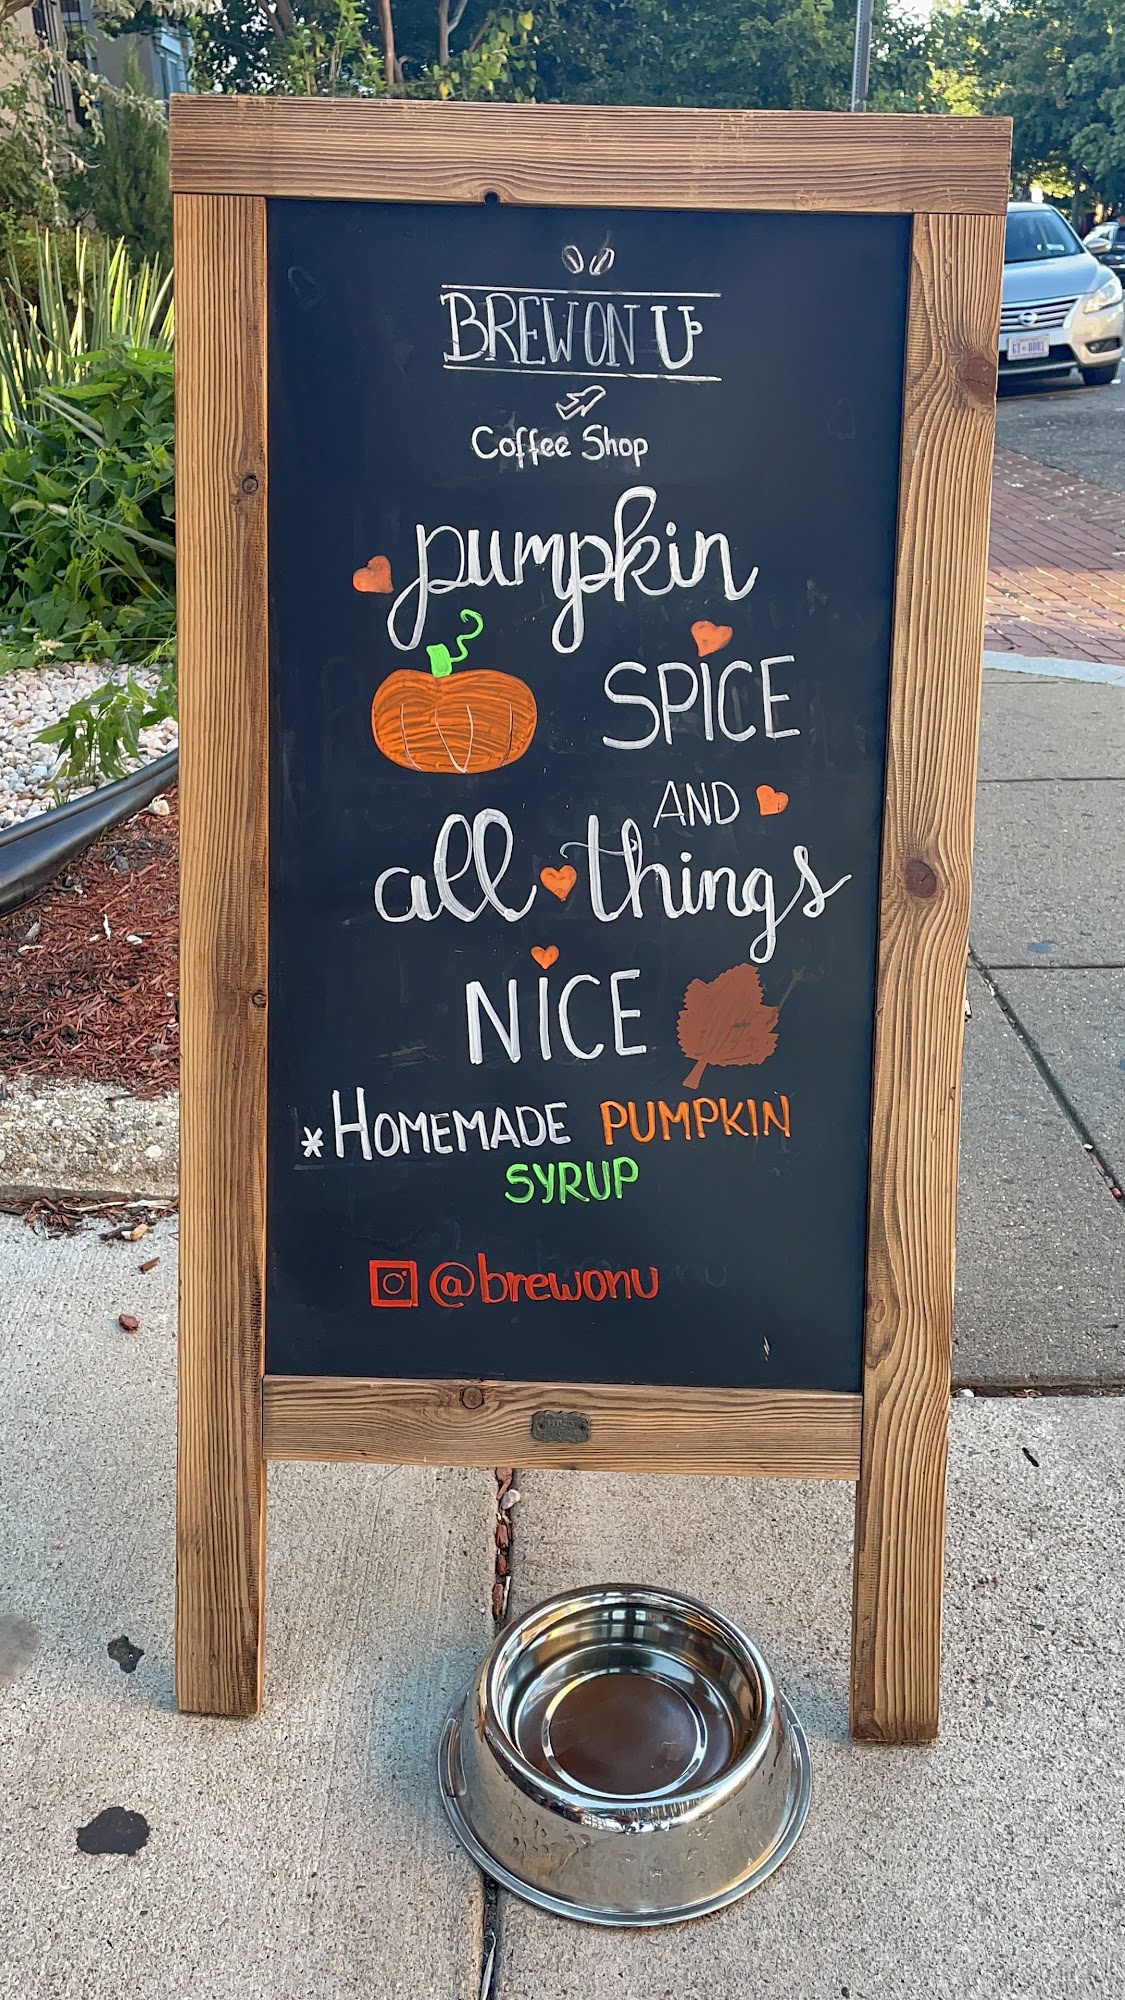 BREW ON U
Coffee Shop
pumpkin
SPICE
AND
all things
NICE
*HOMEMADE PUMPKIN
SYRUP
@brewonu